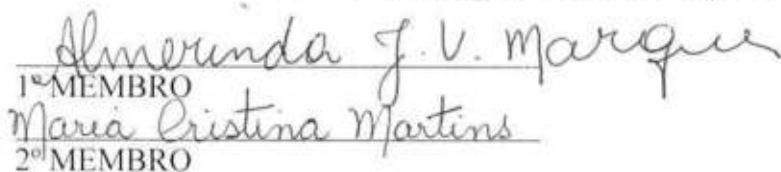 Almerinda J. V. Marques
1º MEMBRO
Maria Cristina Martins
2º MEMBRO